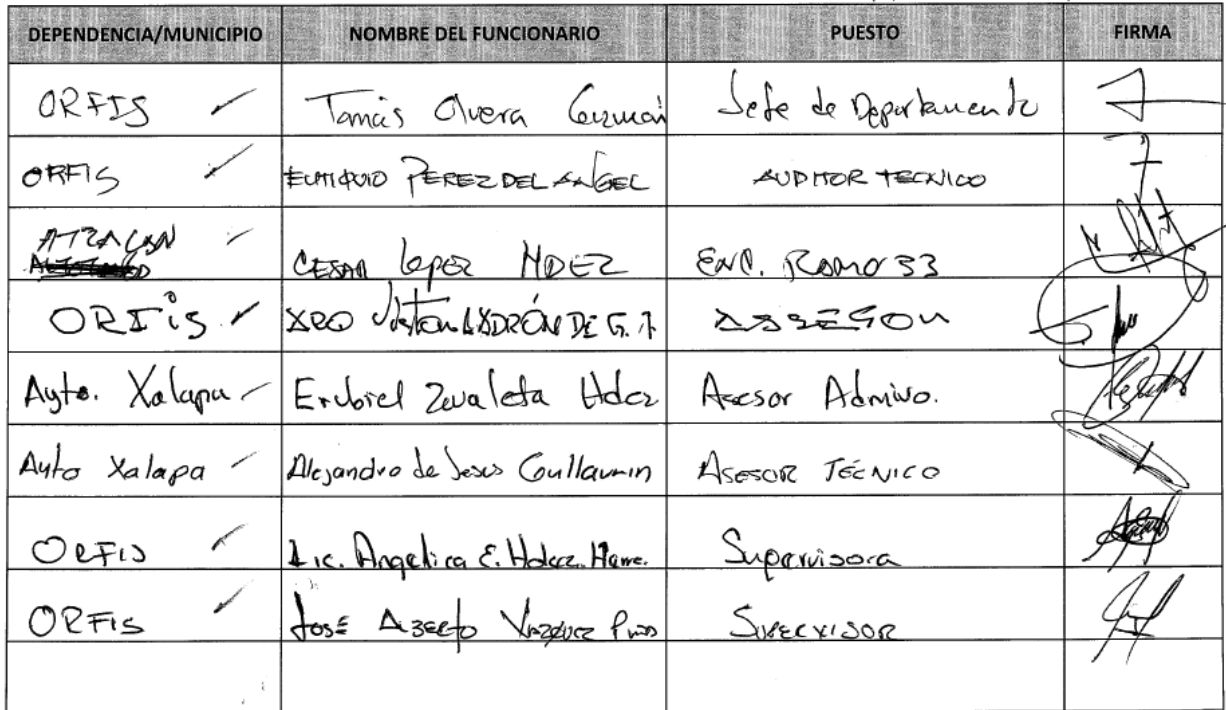 DEPENDENCIA/MUNICIPIO NOMBRE DEL FUNCIONARIO PUESTO FIRMA
ORFIS Tomás Olvera Guzmán Jefe de Departamento
ORFIS EUTIQUIO PEREZ DEL ANGEL AUDITOR TECNICO
ATZACAN CESAR LOPEZ HDEZ ENC. RAMO 33
ORFiS LADRÓN DE G. ASESOR
Ayto. Xalapa Erubiel Zavaleta Hdez Asesor Admivo.
Ayto Xalapa Alejandro de Jesus Coullaumin ASESOR TÉCNICO
ORFIS Lic. Angelica E. Hdez. Supervisora
ORFIS JOSÉ ALBERTO VAZQUEZ SUPERVISOR